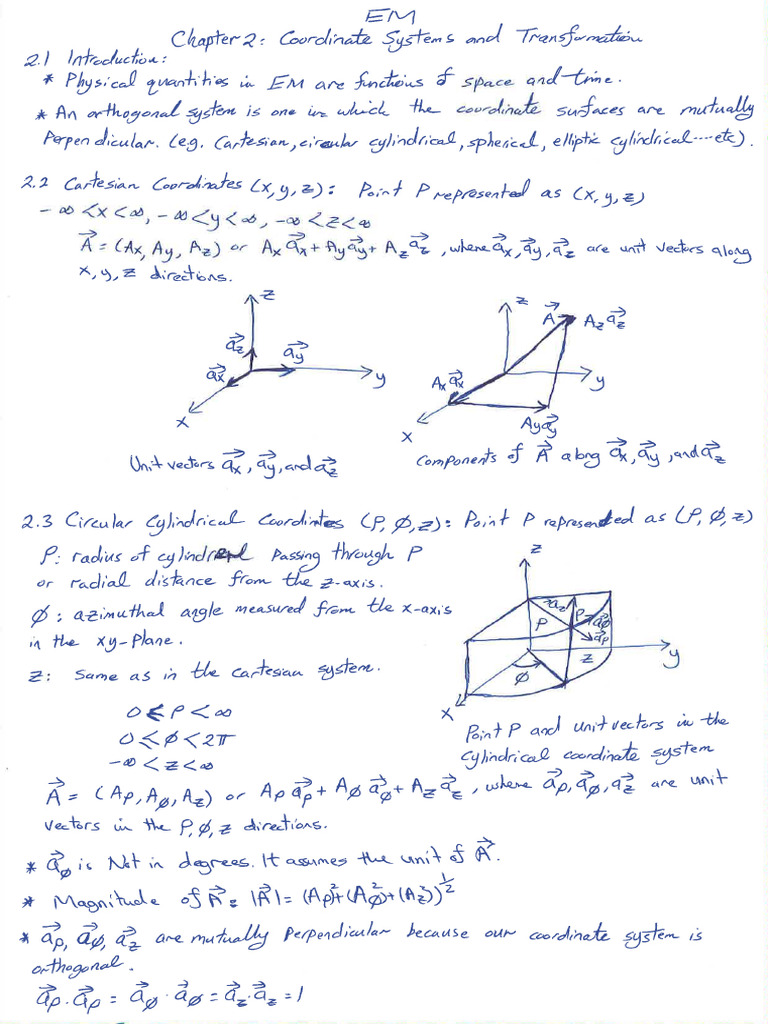 EM
Chapter 2: Coordinate Systems and Transformation
2.1 Introduction:
* Physical quantities in EM are functions of space and time.
* An orthogonal system is one in which the coordinate surfaces are mutually
Perpendicular. (e.g. Cartesian, circular cylindrical, spherical, elliptic cylindrical....etc).
2.2 Cartesian Coordinates (x, y, z): Point P represented as (x, y, z)
-∞ < x < ∞, -∞ < y < ∞, -∞ < z < ∞
A⃗ = (Ax, Ay, Az) or Ax a⃗x + Ay a⃗y + Az a⃗z, where a⃗x, a⃗y, a⃗z are unit vectors along
x, y, z directions.
z
a⃗z
a⃗y
a⃗x
y
x
Unit vectors a⃗x, a⃗y, and a⃗z
z
A⃗
Az a⃗z
Ax a⃗x
y
Ay a⃗y
x
Components of A⃗ along a⃗x, a⃗y, and a⃗z
2.3 Circular Cylindrical Coordinates (ρ, φ, z): Point P represented as (ρ, φ, z)
ρ: radius of cylinder passing through P
or radial distance from the z-axis.
φ: azimuthal angle measured from the x-axis
in the xy-plane.
z: Same as in the cartesian system.
0 ≤ ρ < ∞
0 ≤ φ < 2π
-∞ < z < ∞
z
a⃗z
P
a⃗φ
ρ
a⃗ρ
z
y
φ
x
Point P and unit vectors in the
Cylindrical coordinate system
A⃗ = (Aρ, Aφ, Az) or Aρ a⃗ρ + Aφ a⃗φ + Az a⃗z, where a⃗ρ, a⃗φ, a⃗z are unit
vectors in the ρ, φ, z directions.
* a⃗φ is Not in degrees. It assumes the unit of A⃗.
* Magnitude of A⃗ = |A⃗| = (Aρ)²+(Aφ²+(Az²))^1/2
* a⃗ρ, a⃗φ, a⃗z are mutually Perpendicular because our coordinate system is
orthogonal.
a⃗ρ · a⃗ρ = a⃗φ · a⃗φ = a⃗z · a⃗z = 1